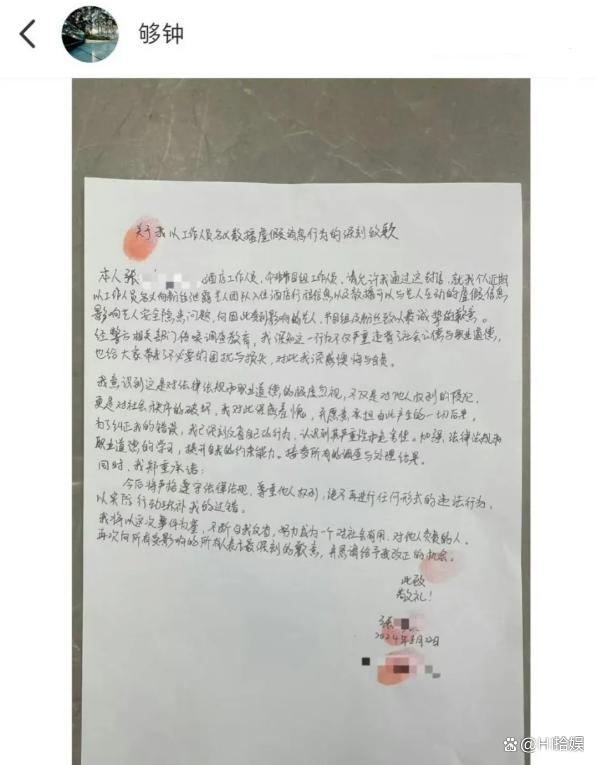 够钟
关于我以工作人员名义散播虚假消息行为的深刻致歉
本人张 酒店工作人员,个非节目组工作人员,请允许我通过这封信,就我个人近期
以工作人员名义向粉丝泄露艺人团队入住酒店行程信息以及散播可以与艺人互动的虚假信息
影响艺人安全隐患问题,向因此受到影响的艺人,节目组及粉丝致以最诚挚的歉意。
经警方相关部门传唤调查教育,我深知这一行为不仅严重违背了社会公德与职业道德,
也给大家带来了不必要的困扰与损失,对此我深感懊悔与自责。
我意识到这是对法律法规和职业道德的极度忽视,不仅是对他人权利的侵犯,
更是对社会秩序的破坏,我对此深感羞愧,并愿意承担由此产生的一切后果。
为了纠正我的错误,我已深刻反省自己的行为,认识到其严重性和危害性。加强法律法规和
职业道德的学习,提升自我约束能力。接受所有的调查与处理结果。
同时,我郑重承诺:
今后将严格遵守法律法规,尊重他人权利,绝不再进行任何形式的违法行为,
以实际行动弥补我的过错。
我将以这次事件为鉴,不断自我反省,努力成为一个对社会有用、对他人负责的人。
再次向所有受影响的所有人表示最深刻的歉意,并恳请给予我改正的机会。
此致
敬礼!
张
2024年5月22日
HI拾娱